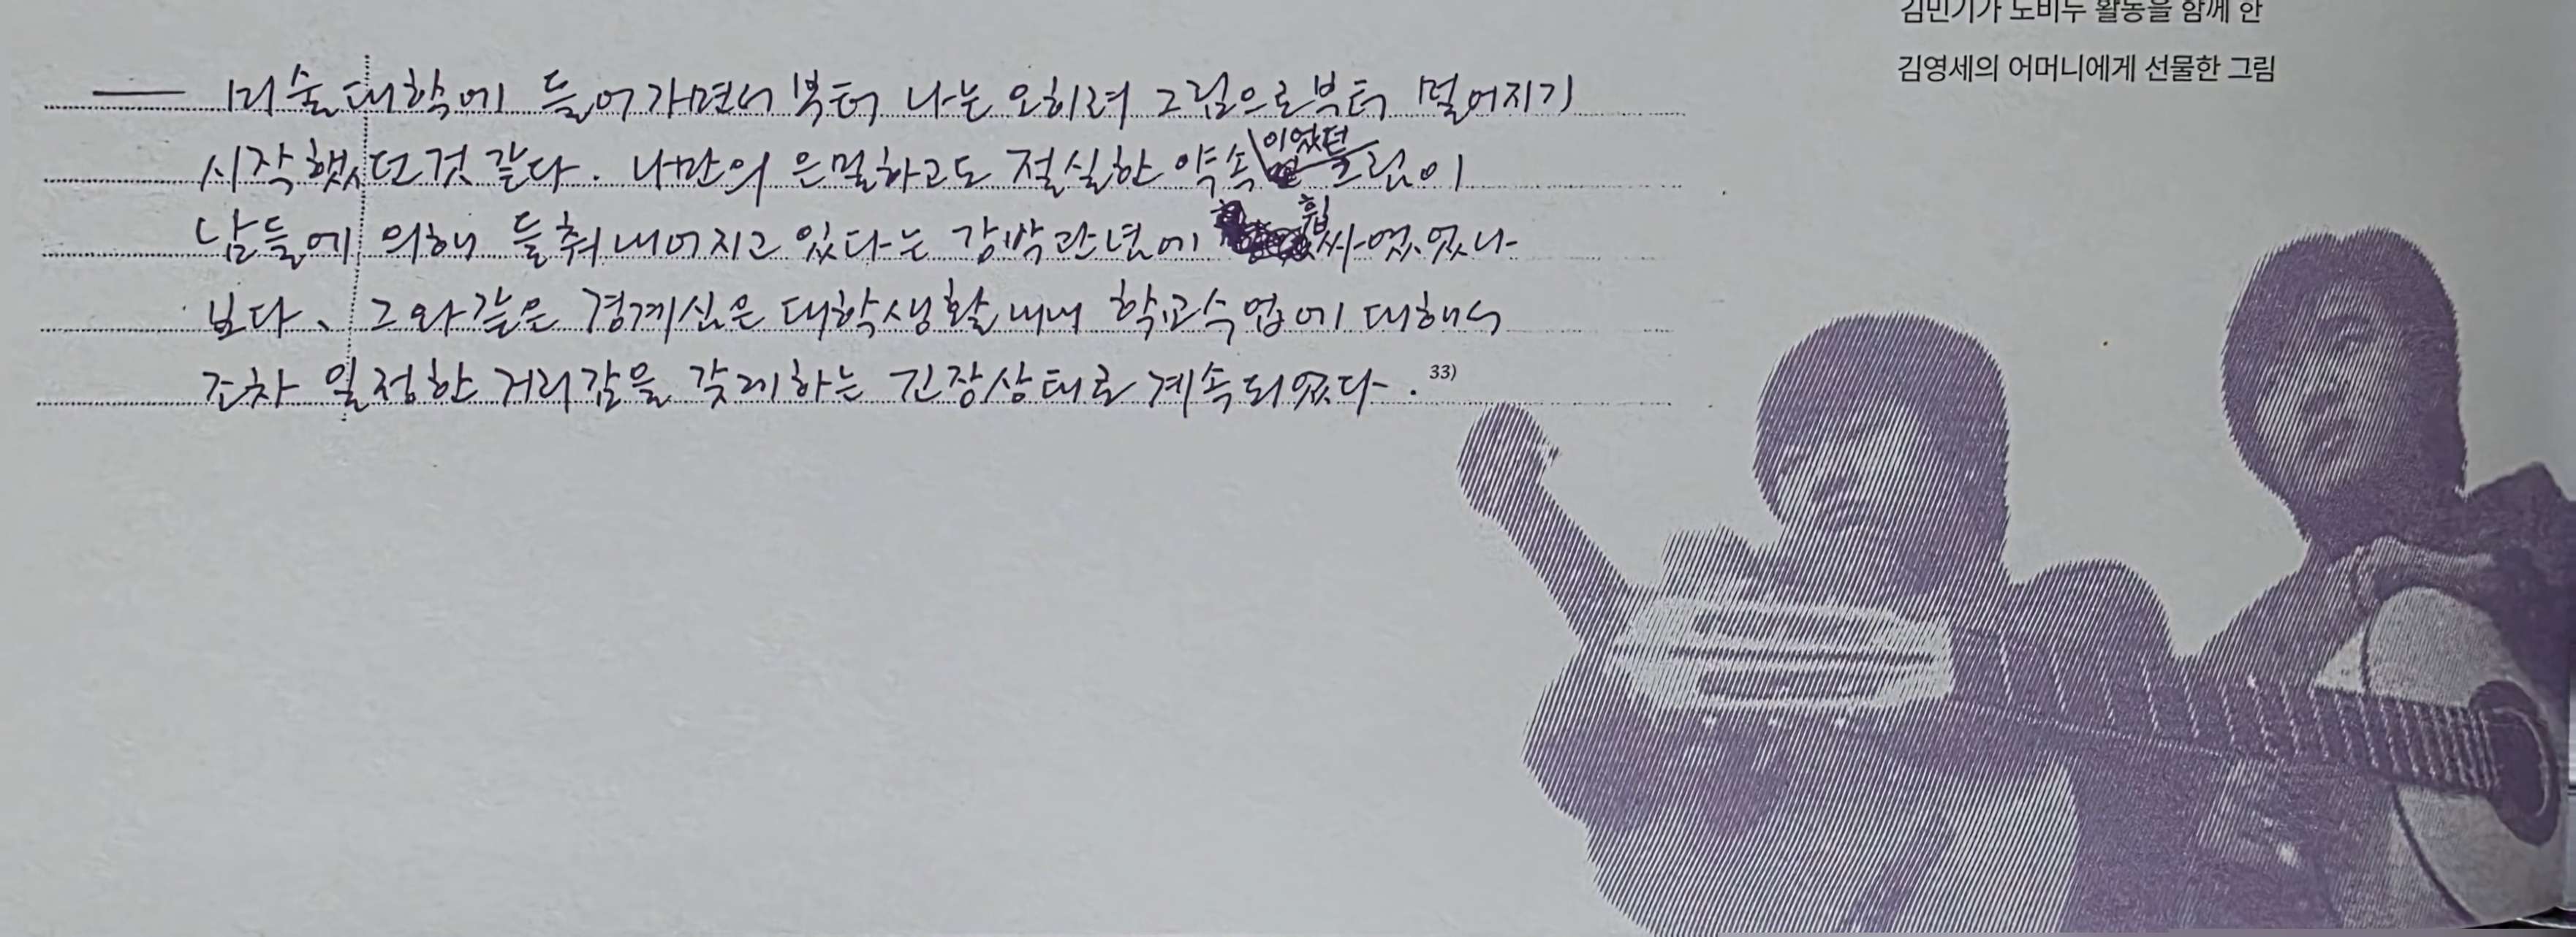 김민기가 도비두 활동을 함께 한
김영세의 어머니에게 선물한 그림
— 미술대학에 들어가면서부터 나는 오히려 그림으로부터 멀어지기
시작했던것 같다. 나만의 은밀하고도 절실한 약속이었던 그림이
남들에 의해 들춰내어지고 있다는 강박관념에 휩싸였었나
보다. 그와같은 경계심은 대학생활 내내 학교수업에 대해서
조차 일정한 거리감을 갖게하는 긴장상태로 계속되었다. 33)